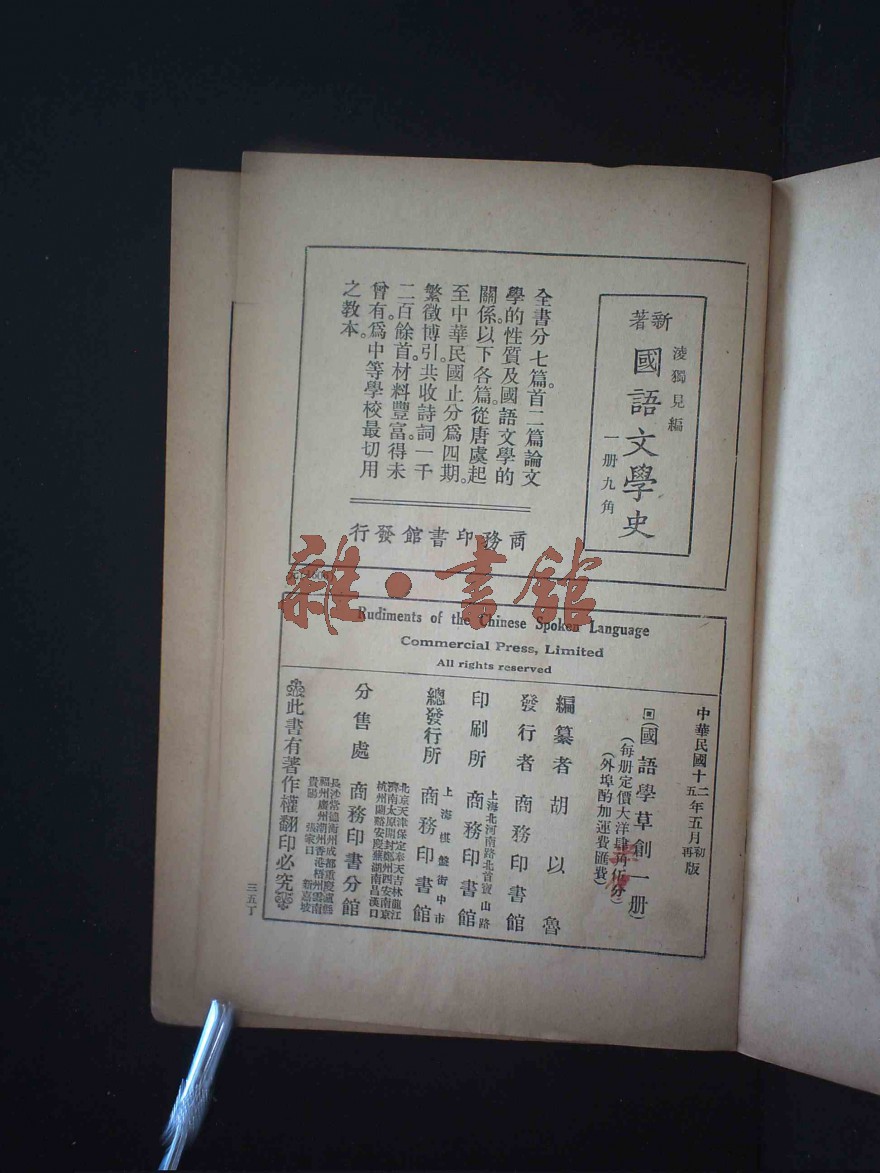 凌獨見編
新著
國語文學史
一册九角
全書分七篇。首二篇論文
學的性質及國語文學的
關係。以下各篇。從唐虞起
至中華民國止分爲四期。
繁徵博引。共收詩詞一千
二百餘首。材料豐富。得未
曾有。爲中等學校最切用
之教本。
商務印書館發行
雜·書館
Rudiments of the Chinese Spoken Language
Commercial Press, Limited
All rights reserved
中華民國十二年五月初版
五再
(國語學草創一册)
(每册定價大洋肆角伍分)
(外埠酌加運費匯費)
編纂者 胡以魯
發行者 商務印書館
印刷所 上海北河南路北首寶山路 商務印書館
總發行所 上海棋盤街中市 商務印書館
分售處 商務印書分館
北京天津保定奉天吉林龍江
濟南太原開封鄭州西安南京
杭州蘭谿安慶蕪湖南昌漢口
長沙常德衡州成都重慶瀘縣
福州廣州潮州香港梧州雲南
貴陽 張家口 新嘉坡
此書有著作權翻印必究
三五丁